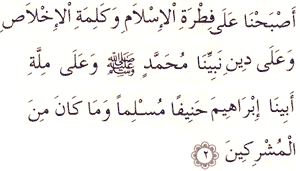 أَصْبَحْنَا عَلَى فِطْرَةِ الْإِسْلَامِ وَكَلِمَةِ الْإِخْلَاصِ
وَعَلَى دِينِ نَبِيِّنَا مُحَمَّدٍ ﷺ وَعَلَى مِلَّةِ
أَبِينَا إِبْرَاهِيمَ حَنِيفًا مُسْلِماً وَمَا كَانَ مِنَ
الْمُشْرِكِينَ ٢